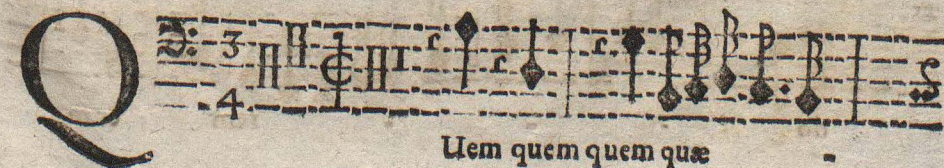 3
4
QUem quem quem quæ -